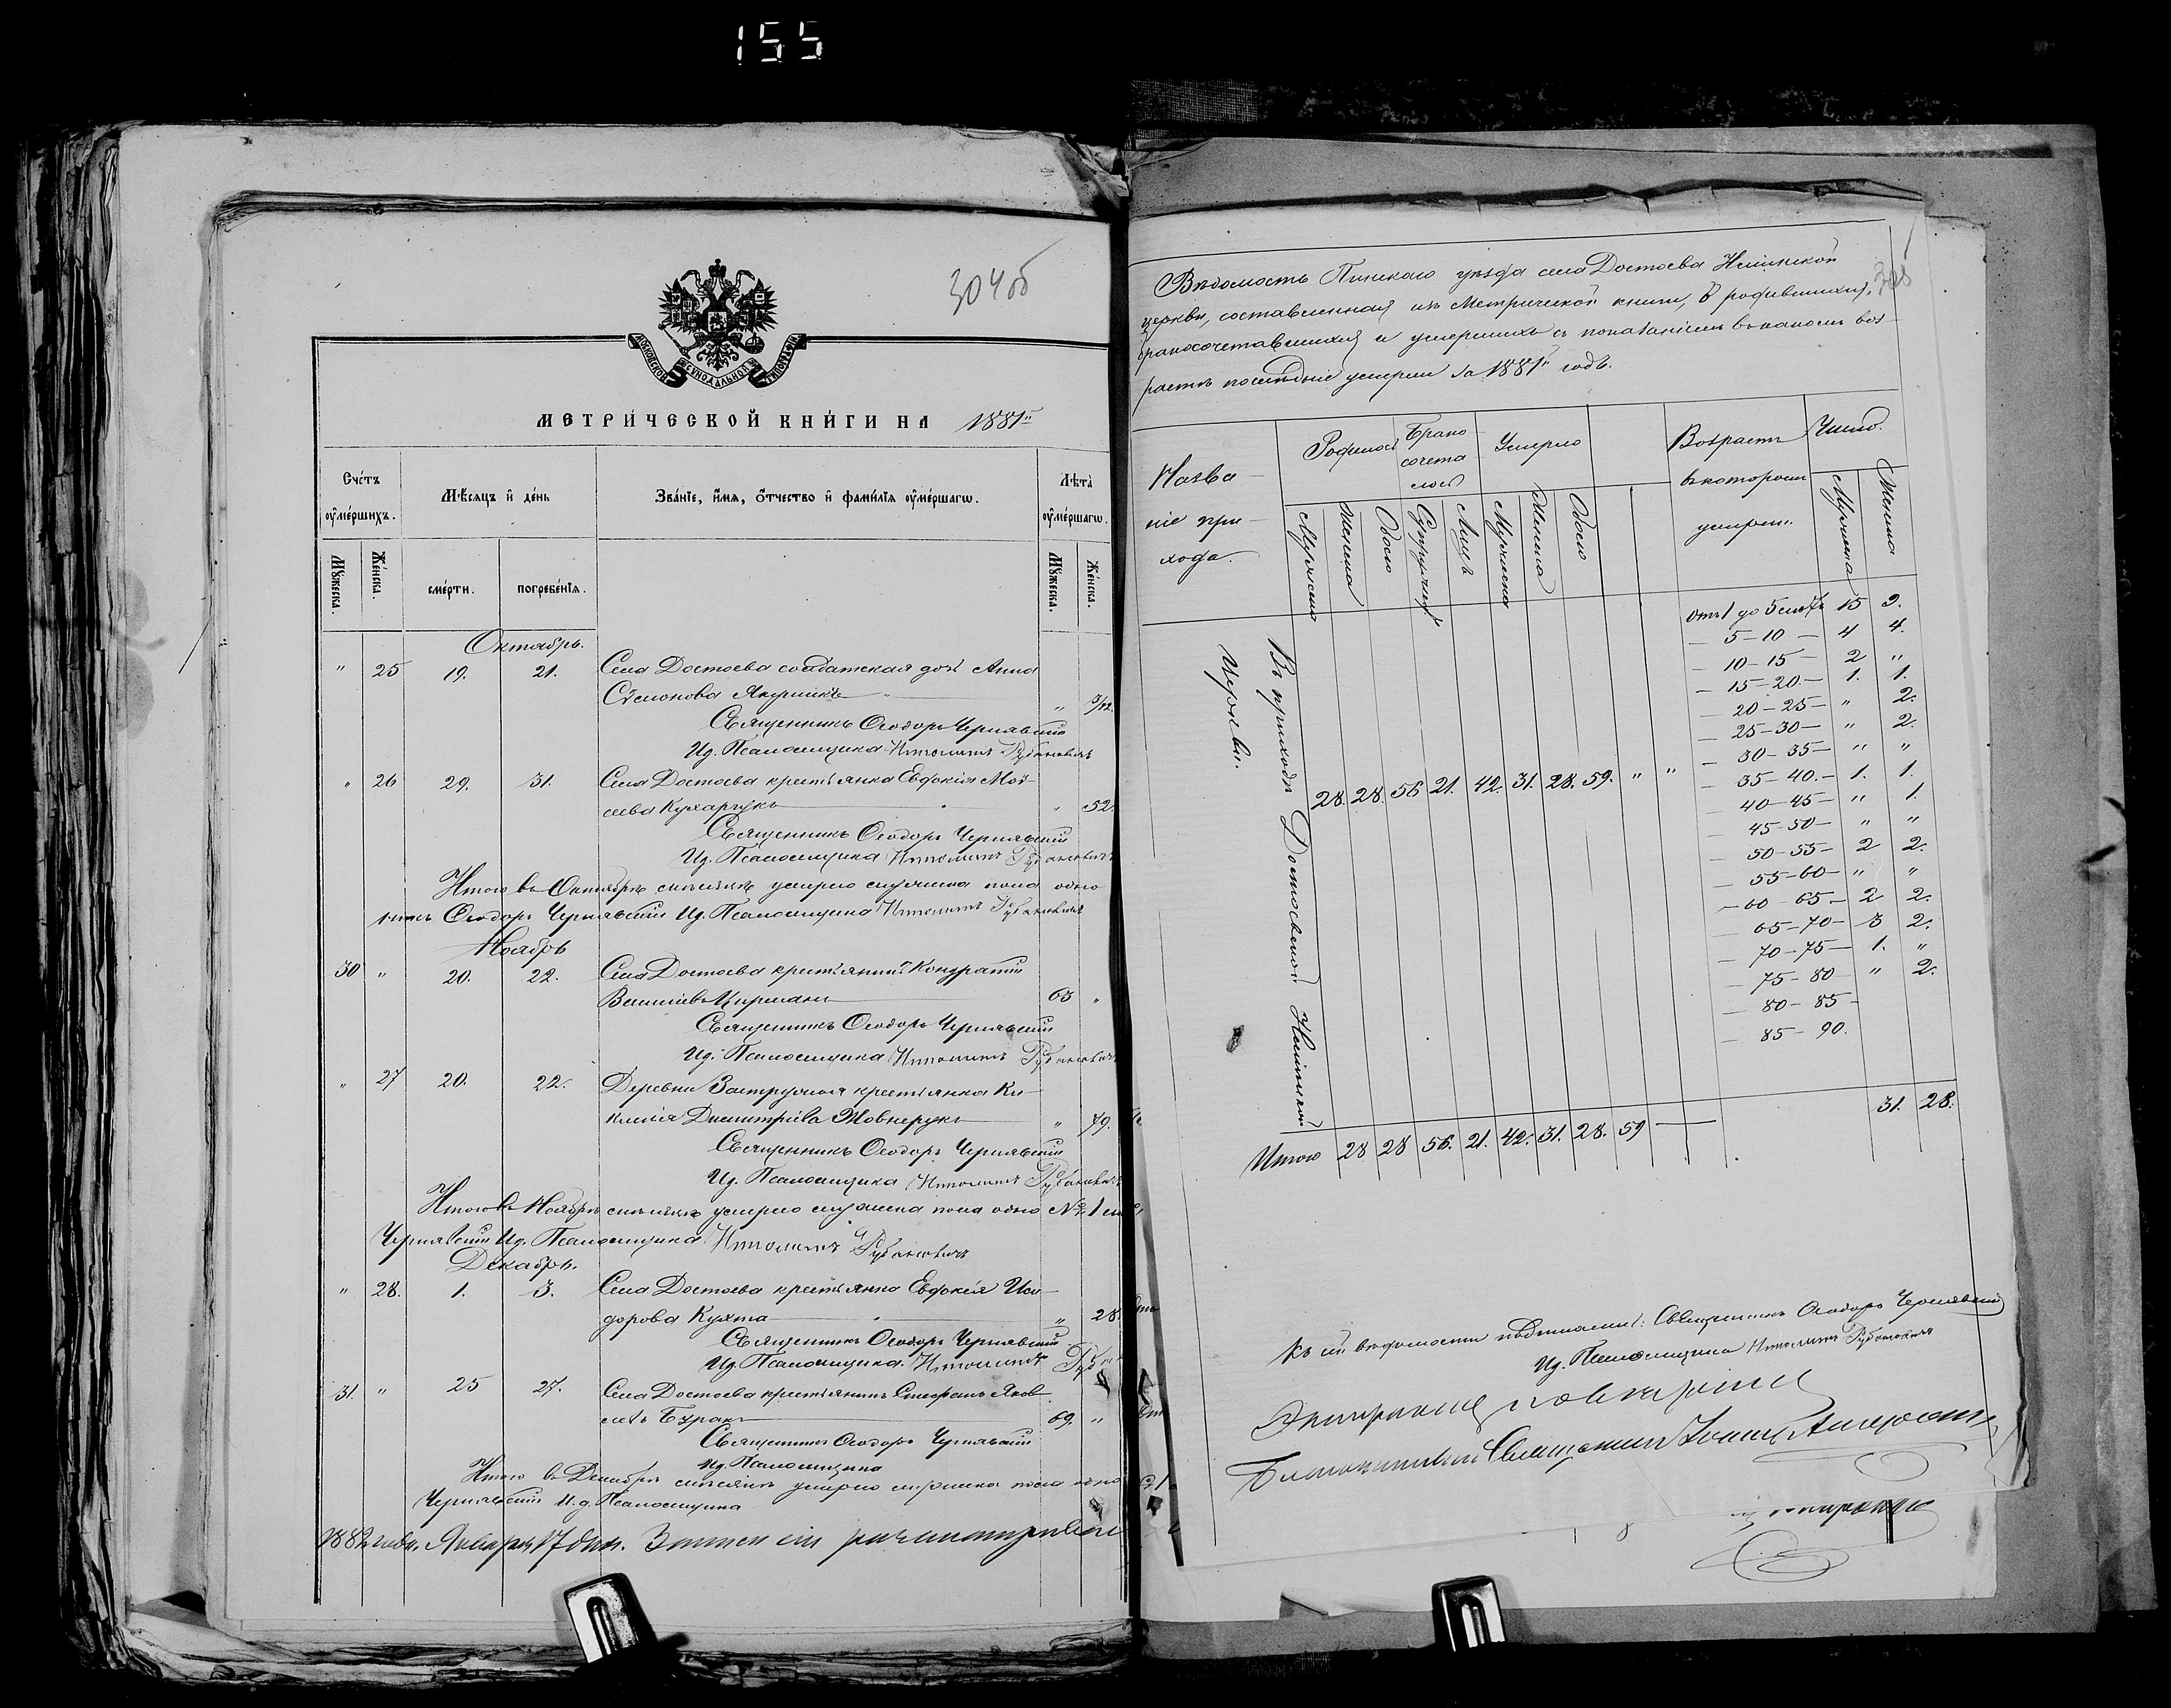 155
304об
МОСКОВСКОЙ СѴНОДАЛЬНОЙ ТИПОГРАФІИ
МЕТРИ́ЧЕСКОЙ КНИ́ГИ НА 1881й
Сче́тъ оумéршихъ.
Мѣ́сяцъ и де́нь
Зва́нїе, и́мя, о́тчество и фами́лїя оуме́ршагѡ.
Лѣта̀ оуме́ршагѡ.
Мꙋ́жеска.
Же́нска.
сме́рти.
погребе́нїя.
Мꙋ́жеска.
Же́нска.
Октябрь.
" 25 19. 21. Села Достоева солдатская дочь Анна
Семенова Якушикъ " 3/12.
Священникъ Ѳеодоръ Чернявскій
Ид. Псаломщика Ипполитъ Рубановичъ
" 26 29. 31. Села Достоева крестьянка Евдокія Мой-
сеева Кухарчукъ " 52.
Священникъ Ѳеодоръ Чернявскій
Ид. Псаломщика Ипполитъ Рубановичъ
Итого въ Октябрѣ мѣсяцѣ умерло мужеска пола одно
Ѳеодоръ Чернявскій Ид. Псаломщика Ипполитъ Рубановичъ
Ноябрь
30 " 20. 22. Села Достоева крестьянинъ Кондратій
63 "
Священникъ Ѳеодоръ Чернявскій
Ид. Псаломщика Ипполитъ Рубановичъ
" 27 20. 22. Деревни Застружья крестьянка Ки-
килія Димитріева Жовнерукъ " 79.
Священникъ Ѳеодоръ Чернявскій
Ид. Псаломщика Ипполитъ Рубановичъ
Итого въ Ноябрѣ мѣсяцѣ умерло мужеска пола одно № 1
Чернявскій Ид. Псаломщика Ипполитъ Рубановичъ
Декабрь.
" 28. 1. 3. Села Достоева крестьянка Евдокія Иси-
дорова Кухта " 28.
Священникъ Ѳеодоръ Чернявскій
Ид. Псаломщика Ипполитъ
31. " 25 27. Села Достоева крестьянинъ Стефанъ Яков-
левъ Буракъ 69. "
Священникъ Ѳеодоръ Чернявскій
Ид. Псаломщика
Итого въ Декабрѣ мѣсяцѣ умерло мужеска пола одно
Чернявскій И.д. Псаломщика
1882 года, Января 17 дня.
Вѣдомость Пинскаго уѣзда села Достоева
церкви, составленная изъ Метрической книги, о родившихся,
бракосочетавшихся и умершихъ съ показаніемъ въ какомъ воз-
растѣ послѣдніе умерли за 1881й годъ.
Назва-
ніе при-
хода.
Родилось
Брако
сочета
лось
Умерло
Возрастъ
въ которомъ
умерли.
Число.
Мужеска
Женска
Обоего
Супружествъ
Лицъ
Мужеска
Женска
Обоего
Мужеска
Женска
Въ приходѣ Достоевской
Церкви.
28. 28. 56 21. 42. 31. 28. 59. " "
Отъ 1 до 5 лѣтъ 15 9.
— 5–10 — 4 4.
— 10–15 — 2 "
— 15–20.– 1. 1.
— 20–25– " 2.
— 25–30– " 2.
— 30–35– " "
— 35–40.– 1. 1.
— 40–45– " 1.
— 45–50– " "
— 50–55– 2 2.
— 55–60– " "
— 60–65.– 2 2.
— 65–70– 3 2.
— 70–75– 1. "
— 75–80 " 2.
— 80–85–
— 85–90.
31. 28.
Итого 28 28 56. 21. 42. 31. 28. 59 —
Къ сей вѣдомости подписались: Священникъ Ѳеодоръ Чернявскій
Ид. Псаломщика Ипполитъ Рубановичъ
Благочинный Священникъ